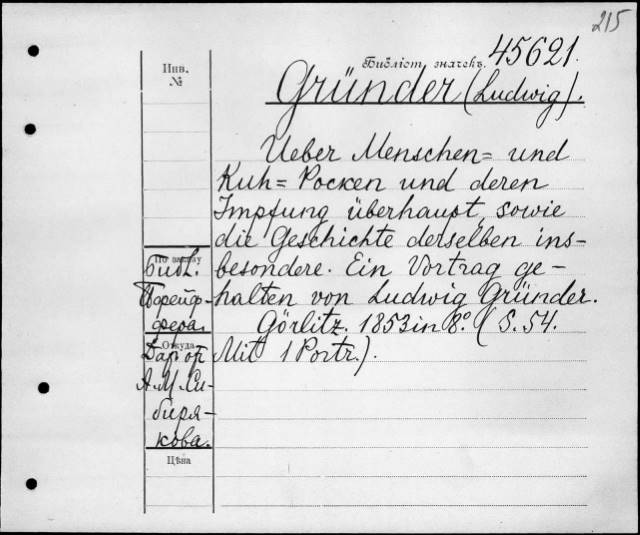 215
Библіот. значекъ. 45621.
Инв.
№
Gründer (Ludwig).
Ueber Menschen= und
Kuh= Pocken und deren
Impfung überhaupt, sowie
die Geschichte derselben ins-
besondere. Ein Vortrag ge-
halten von Ludwig Gründer.
Görlitz. 1853 in 8º. (S. 54.
Mit 1 Portr.).
Библ.
фера.
Откуда
Дар. от
А. М. Си-
биря-
кова.
Цѣна